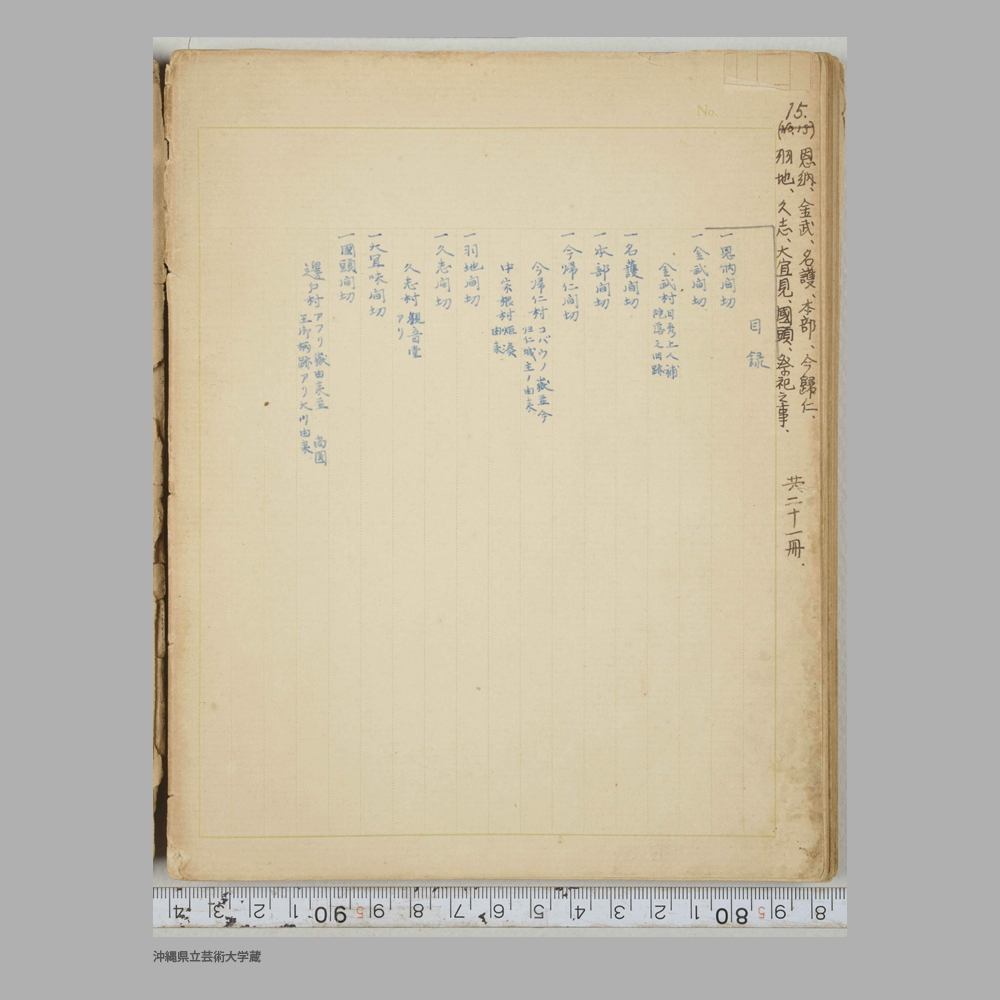 15.
(No.15)
恩納、金武、名護、本部、今歸仁、
羽地、久志、大宜見、國頭、祭祀之事、
共二十一冊.
No.
目録
一恩納間切
一金武間切
金武村 日秀上人補
陀落之旧跡
一名護間切
一本部間切
一今帰仁間切
今帰仁村 コバウノ嶽並今
帰仁城主ノ由来
中宗根村炬湊
由来
一羽地間切
一久志間切
久志村 観音堂
アリ
一大宜味間切
一國頭間切
邊戸村 アフリ嶽由来並 尚圓
王御柄跡アリ大川由来
4 3 2 1 90 9 8 7 6 5 4 3 2 1 80 9 8
沖縄県立芸術大学蔵